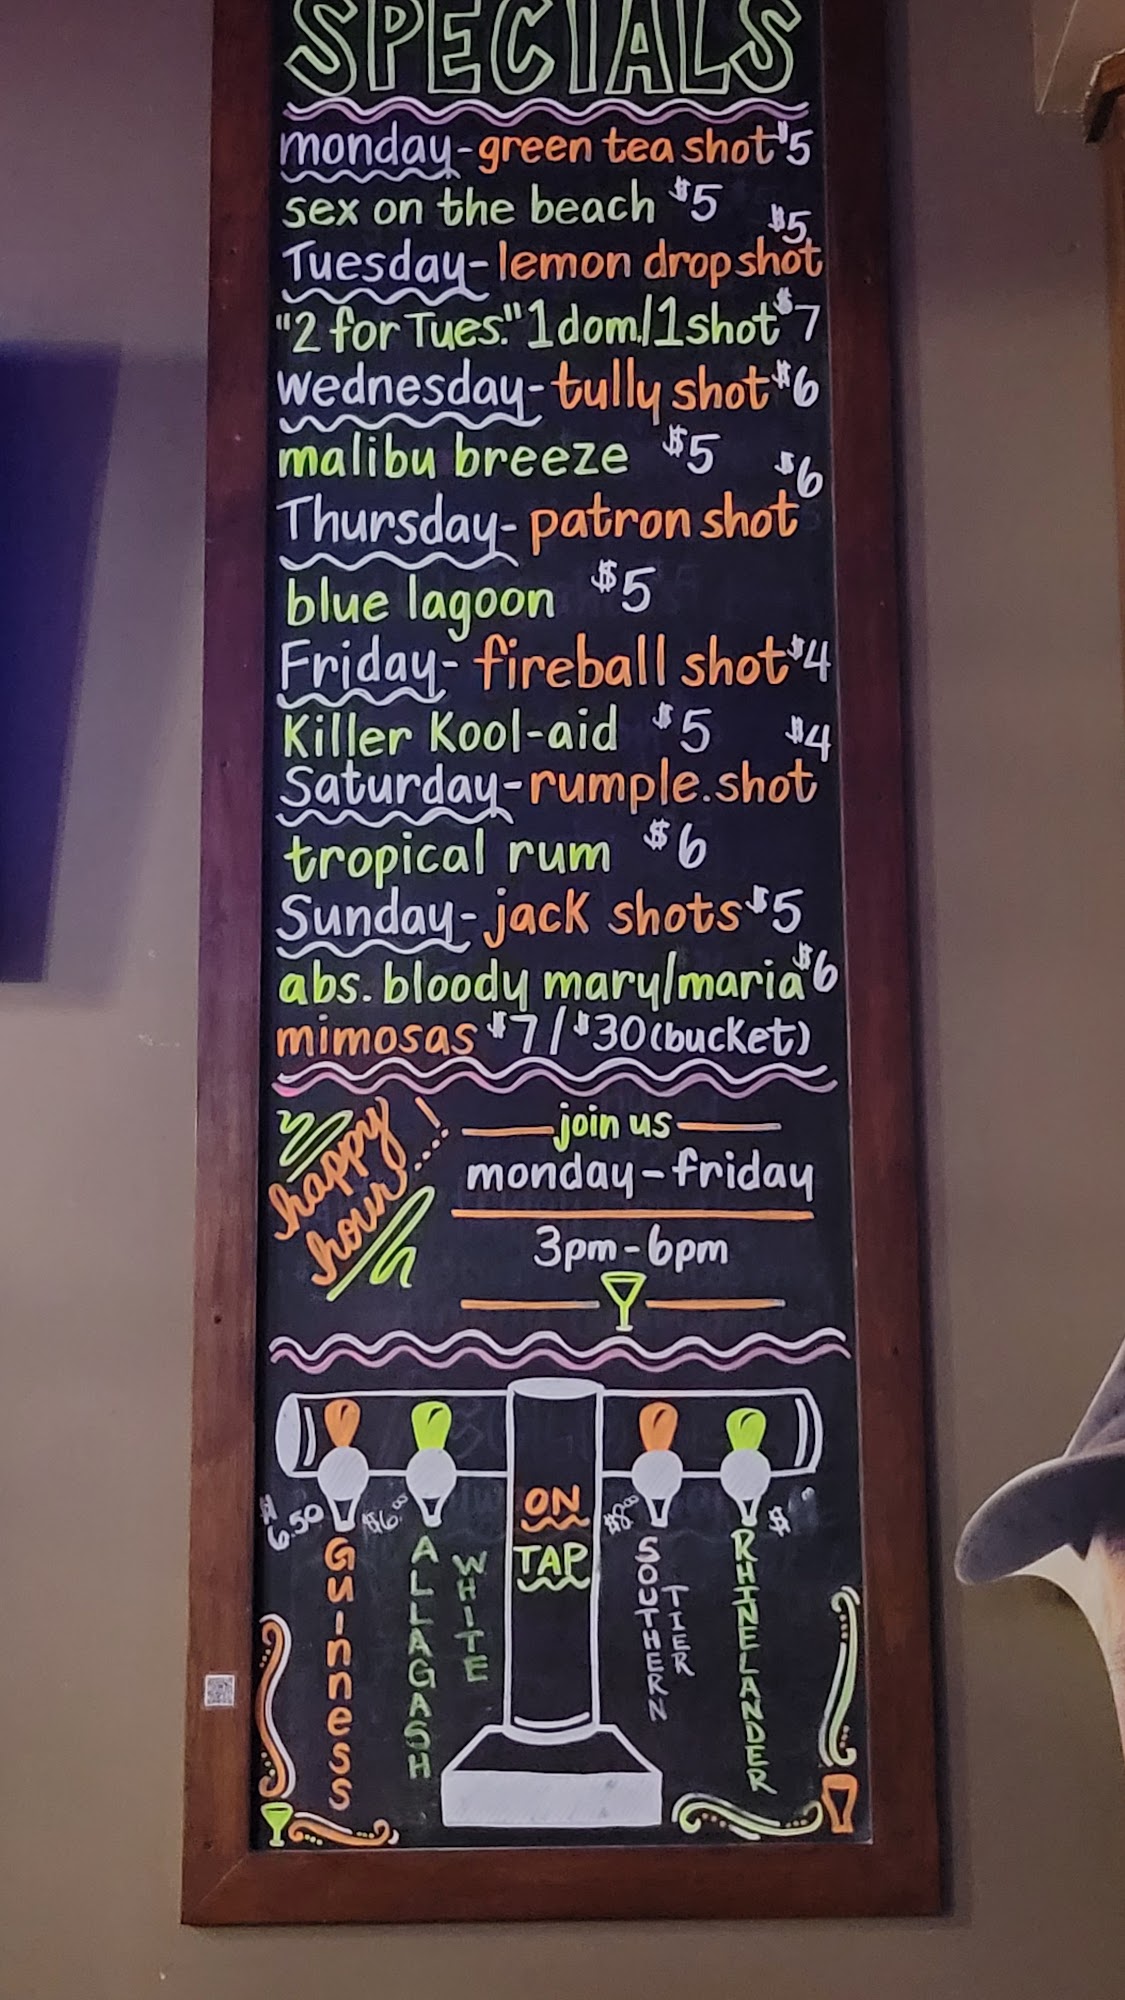 SPECIALS
monday- green tea shot $5
sex on the beach $5
$5
Tuesday- lemon drop shot
"2 for Tues." 1 dom./1 shot $7
Wednesday- tully shot $6
malibu breeze $5
$6
Thursday- patron shot
blue lagoon $5
Friday- fireball shot $4
Killer Kool-aid $5
$4
Saturday- rumple.shot
tropical rum $6
Sunday- jack shots $5
abs. bloody mary/maria $6
mimosas $7/$30 (bucket)
happy
hour!
join us
monday-friday
3pm-6pm
ON
TAP
$6.50
Guinness
$6.00
ALLAGASH
WHITE
$8.00
SOUTHERN
TIER
$
RHINELANDER